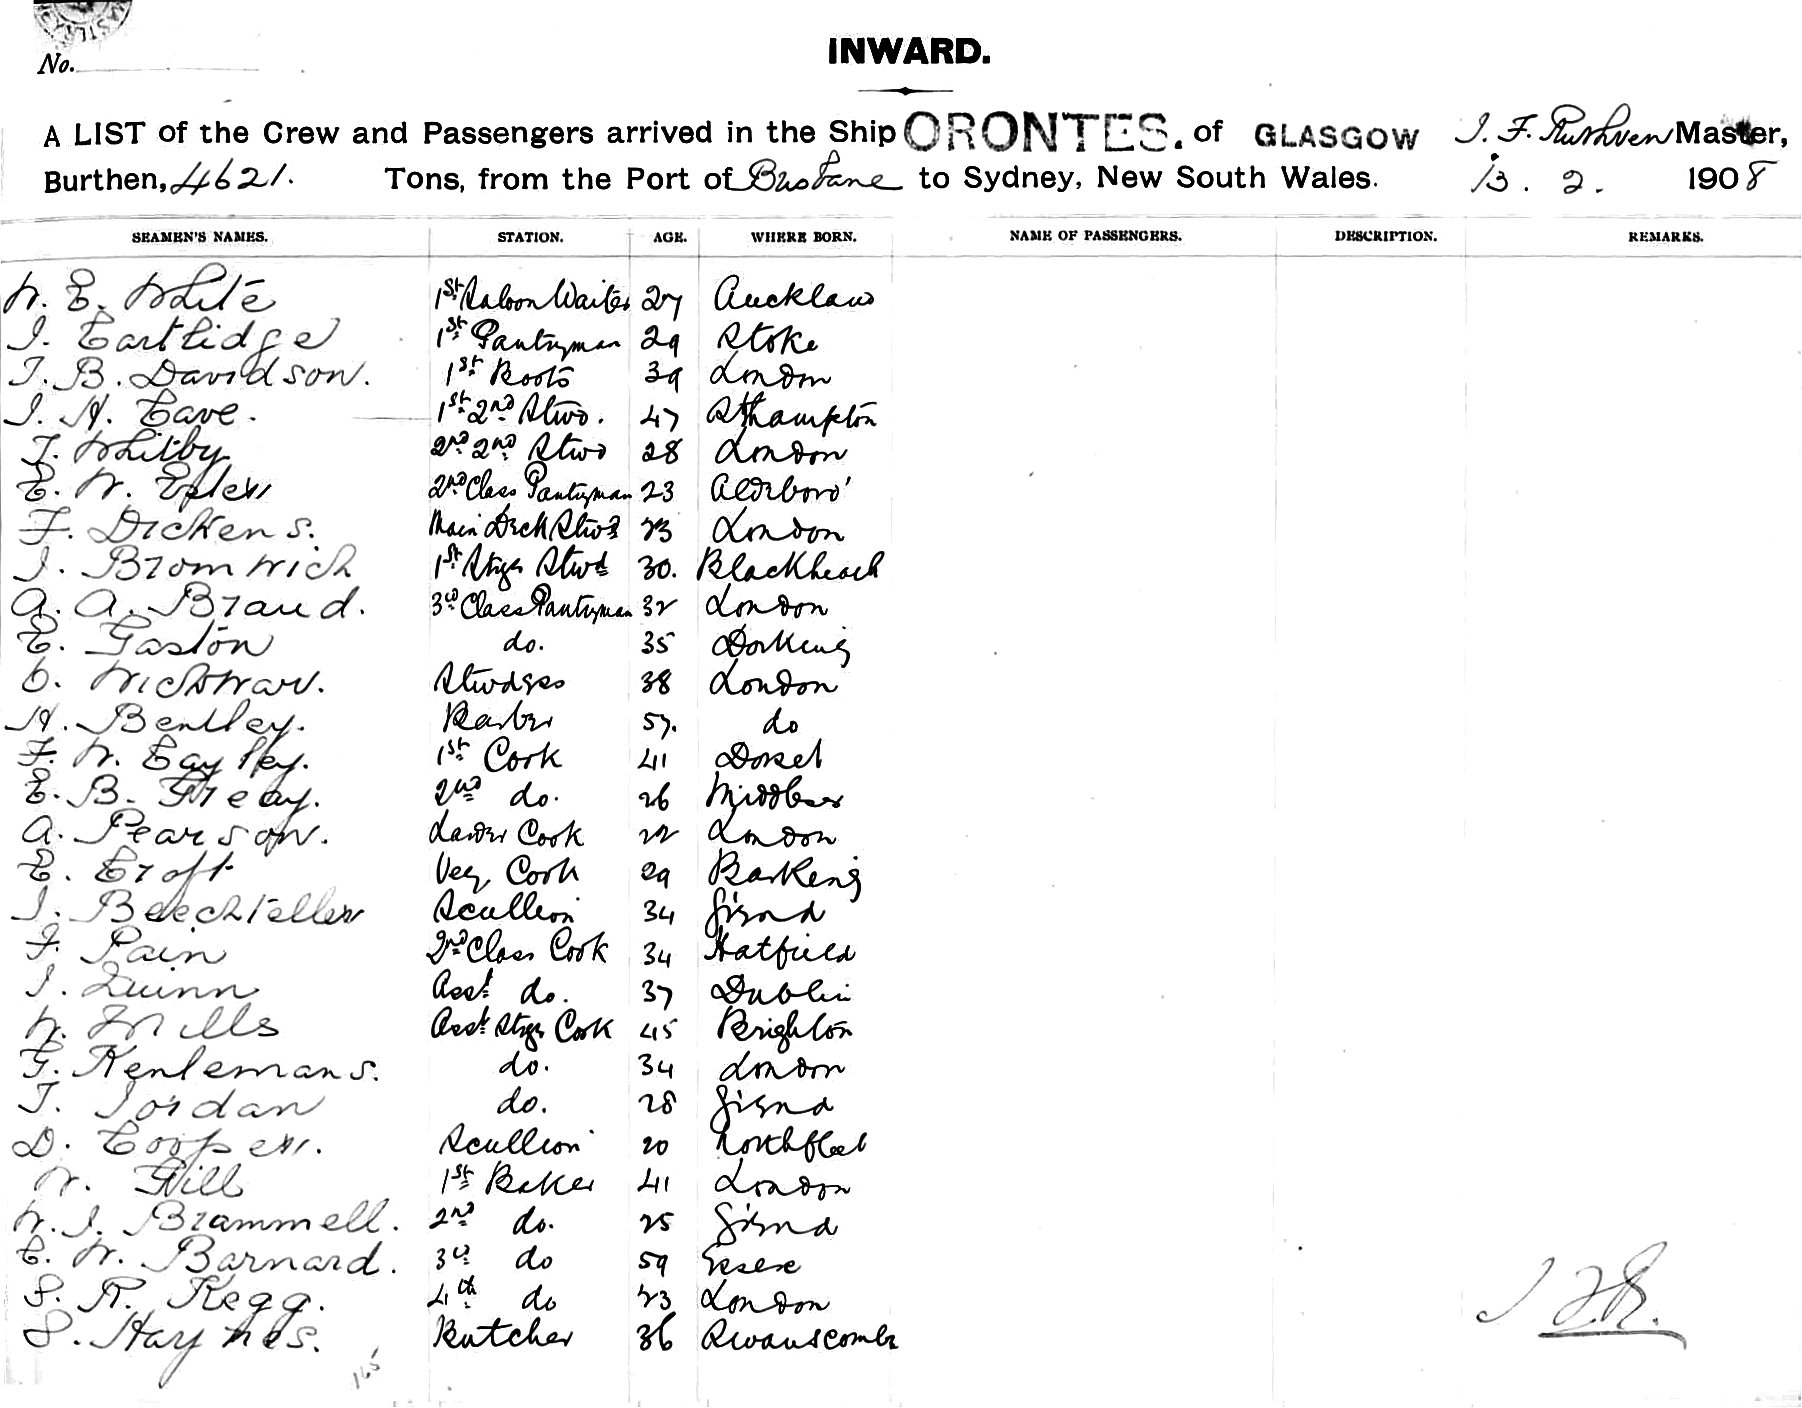 No.
INWARD.
A LIST of the Crew and Passengers arrived in the Ship ORONTES. of GLASGOW J. F. Ruthven Master,
Burthen, 4621. Tons, from the Port of Brisbane to Sydney, New South Wales. 13. 2. 1908
SEAMEN'S NAMES. STATION. AGE. WHERE BORN. NAME OF PASSENGERS. DESCRIPTION. REMARKS.
W. E. White 1st Saloon Waiter 27 Aucklan
J. Cartlidge 1st Pantryman 29 Stoke
T. B. Davidson. 1st Boots 39 London
J. H. Cave. 1st 2nd Stwd. 47 Sthampton
T. Whitby 2nd 2nd Stwd 28 London
E. W. 2nd Class Pantryman 23 Aldeboro'
F. Dickens. Main Deck Stwd 23 London
J. Bromwich 1st Stge Stwd 30. Blackheath
A. A. Braud. 3rd Class Pantryman 32 London
E. Gaston do. 35 Dorking
C. Wickwar. Stwdess 38 London
H. Bentley. Barber 57. do
F. W. Cayley. 1st Cook 41 Dorset
E. B. 2nd do. 26 Middlesex
A. Pearson. Larder Cook 22 London
E. Croft Veg. Cook 29 Barking
J. Scullion 34 Gvsnd
F. Pain 2nd Class Cook 34 Hatfield
J. Quinn Asst do. 37 Dublin
W. Mills Asst Stge Cook 45 Brighton
G. Kentemans. do. 34 London
T. Jordan do. 28 Gvsnd
D. Cooper. Scullion 20 Northfleet
W. Hill 1st Baker 41 London
W. J. Brammell. 2nd do. 25 Gvsnd
C. W. Barnard. 3rd do 59 Essex
S. R. Kegg. 4th do 23 London
S. Haynes. Butcher 36 Swanscombe
165
J F R.